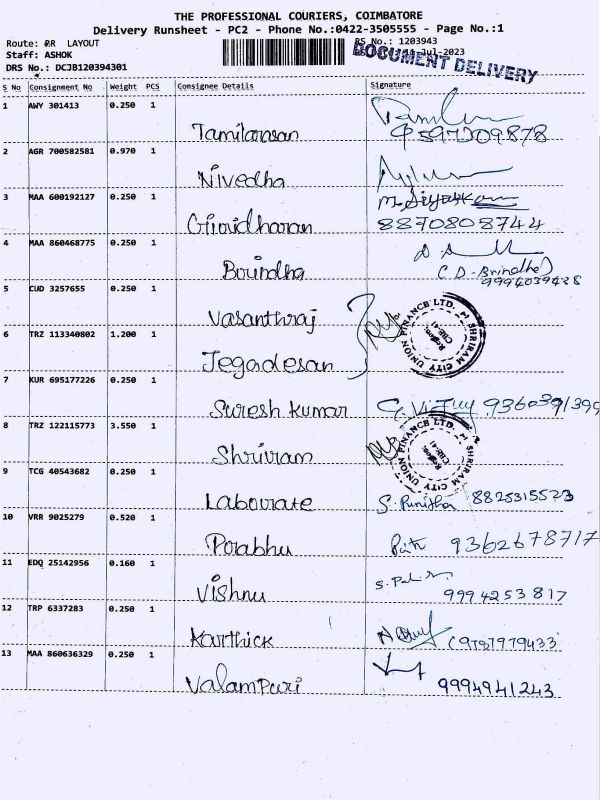 THE PROFESSIONAL COURIERS, COIMBATORE
Delivery Runsheet - PC2 - Phone No.:0422-3505555 - Page No.:1
Route: RR LAYOUT RS No.: 1203943
Staff: ASHOK 11-Jul-2023
DOCUMENT DELIVERY
DRS No.: DCJB120394301
S No Consignment No Weight PCS Consignee Details Signature
1 AWY 301413 0.250 1
Tamilarasan
2 AGR 700582581 0.970 1
Nivedha
3 MAA 600192127 0.250 1
Giridharan 8870808744
4 MAA 860468775 0.250 1
Brindha C D-Brindha
9994039438
5 CUD 3257655 0.250 1
Vasanthraj
SHRIRAM CITY UNION FINANCE LTD.
Region: CBE-41
6 TRZ 113340802 1.200 1
Jegadesan
7 KUR 695177226 0.250 1
Suresh Kumar 9360391399
8 TRZ 122115773 3.550 1
Shriram
SHRIRAM CITY UNION FINANCE LTD.
Region: CBE-41
9 TCG 40543682 0.250 1
Laborate S. Punitha 8825315523
10 VRR 9025279 0.520 1
Prabhu 9362678717
11 EDQ 25142956 0.160 1
Vishnu 9994253817
12 TRP 6337283 0.250 1
Karthick
13 MAA 860636329 0.250 1
Valampuri 9994941243